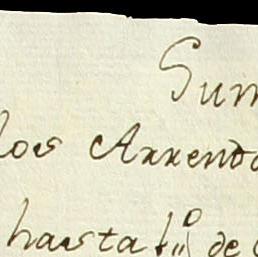 Sum
los Arrenda
hasta fin de